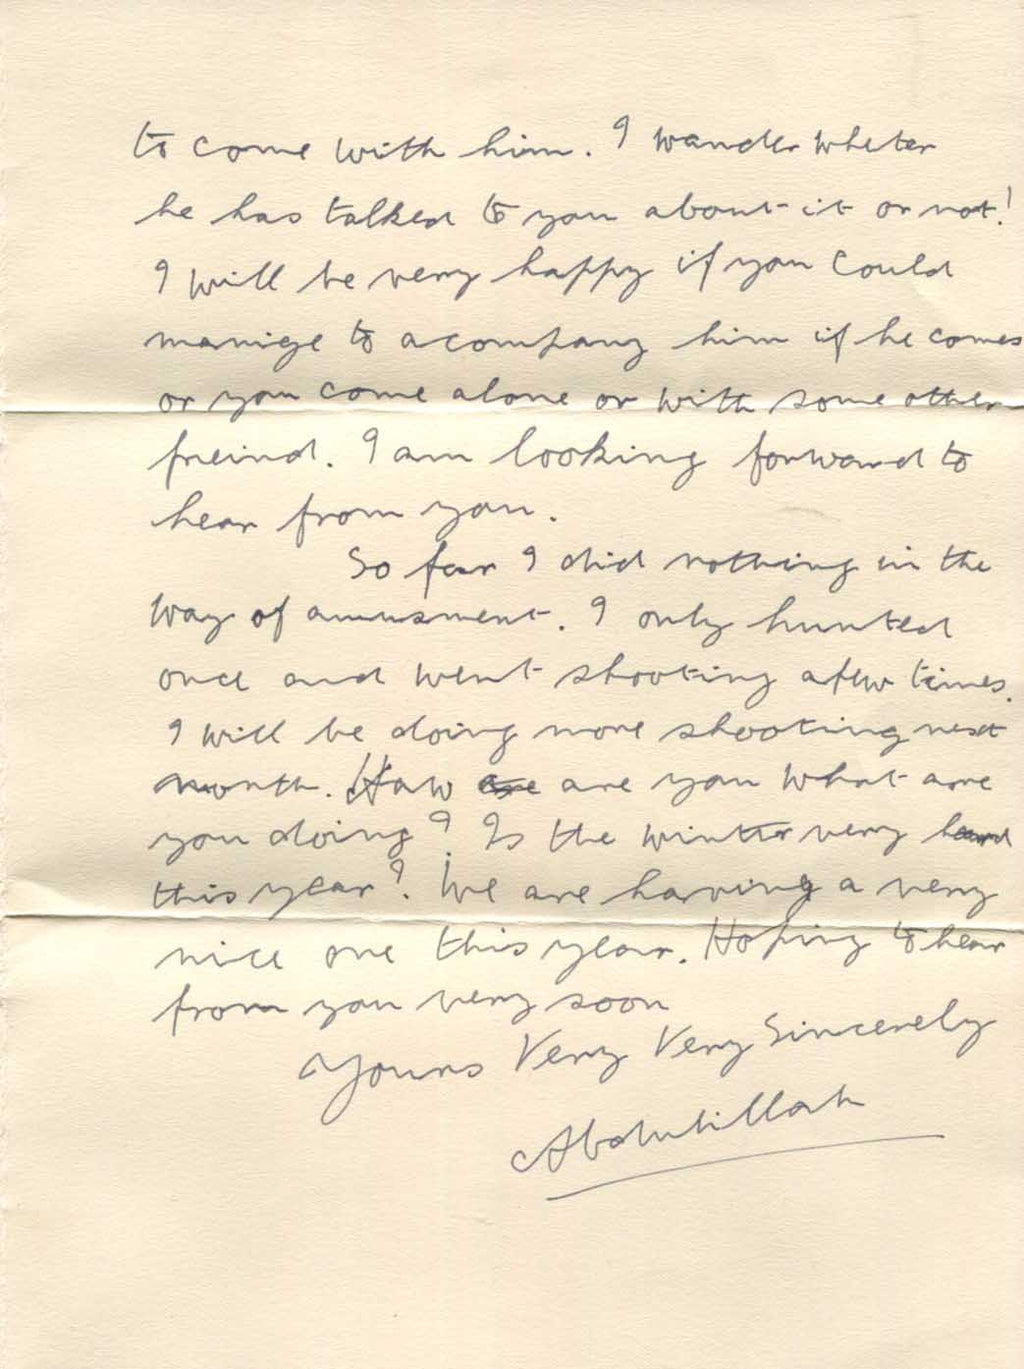 to come with him. I wander wheter
he has talked to you about it or not!
I will be very happy if you could
manige to acompany him if he comes
or you come alone or with some other
freind. I am looking forward to
hear from you.
So far I did nothing in the
way of amusment. I only hunted
once and went shooting a few times.
I will be doing more shooting next
month. How are you what are
you doing? Is the winter very hard
this year? We are having a very
nice one this year. Hoping to hear
from you very soon
Yours Very Very Sincerely
Abdulillah